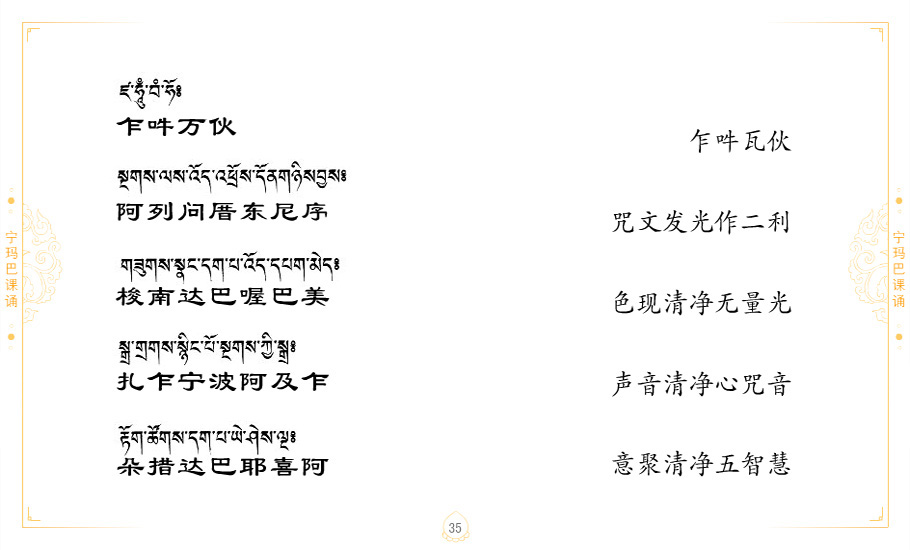 ཛ་ཧཱུྃ་བཾ་ཧོ༔
乍吽万伙
乍吽瓦伙
སྔགས་ལས་འོད་འཕྲོས་དོནགཉིསབྱས༔
阿列问厝东尼序
咒文发光作二利
གཟུགས་སྣང་དག་པ་འོད་དཔག་མེད༔
梭南达巴喔巴美
色现清净无量光
སྒྲ་གྲགས་སྙིང་པོ་སྔགས་ཀྱི་སྒྲ༔
扎乍宁波阿及乍
声音清净心咒音
རྟོག་ཚོགས་དག་པ་ཡེ་ཤེས་ལྔ༔
朵措达巴耶喜阿
意聚清净五智慧
宁玛巴课诵
宁玛巴课诵
35